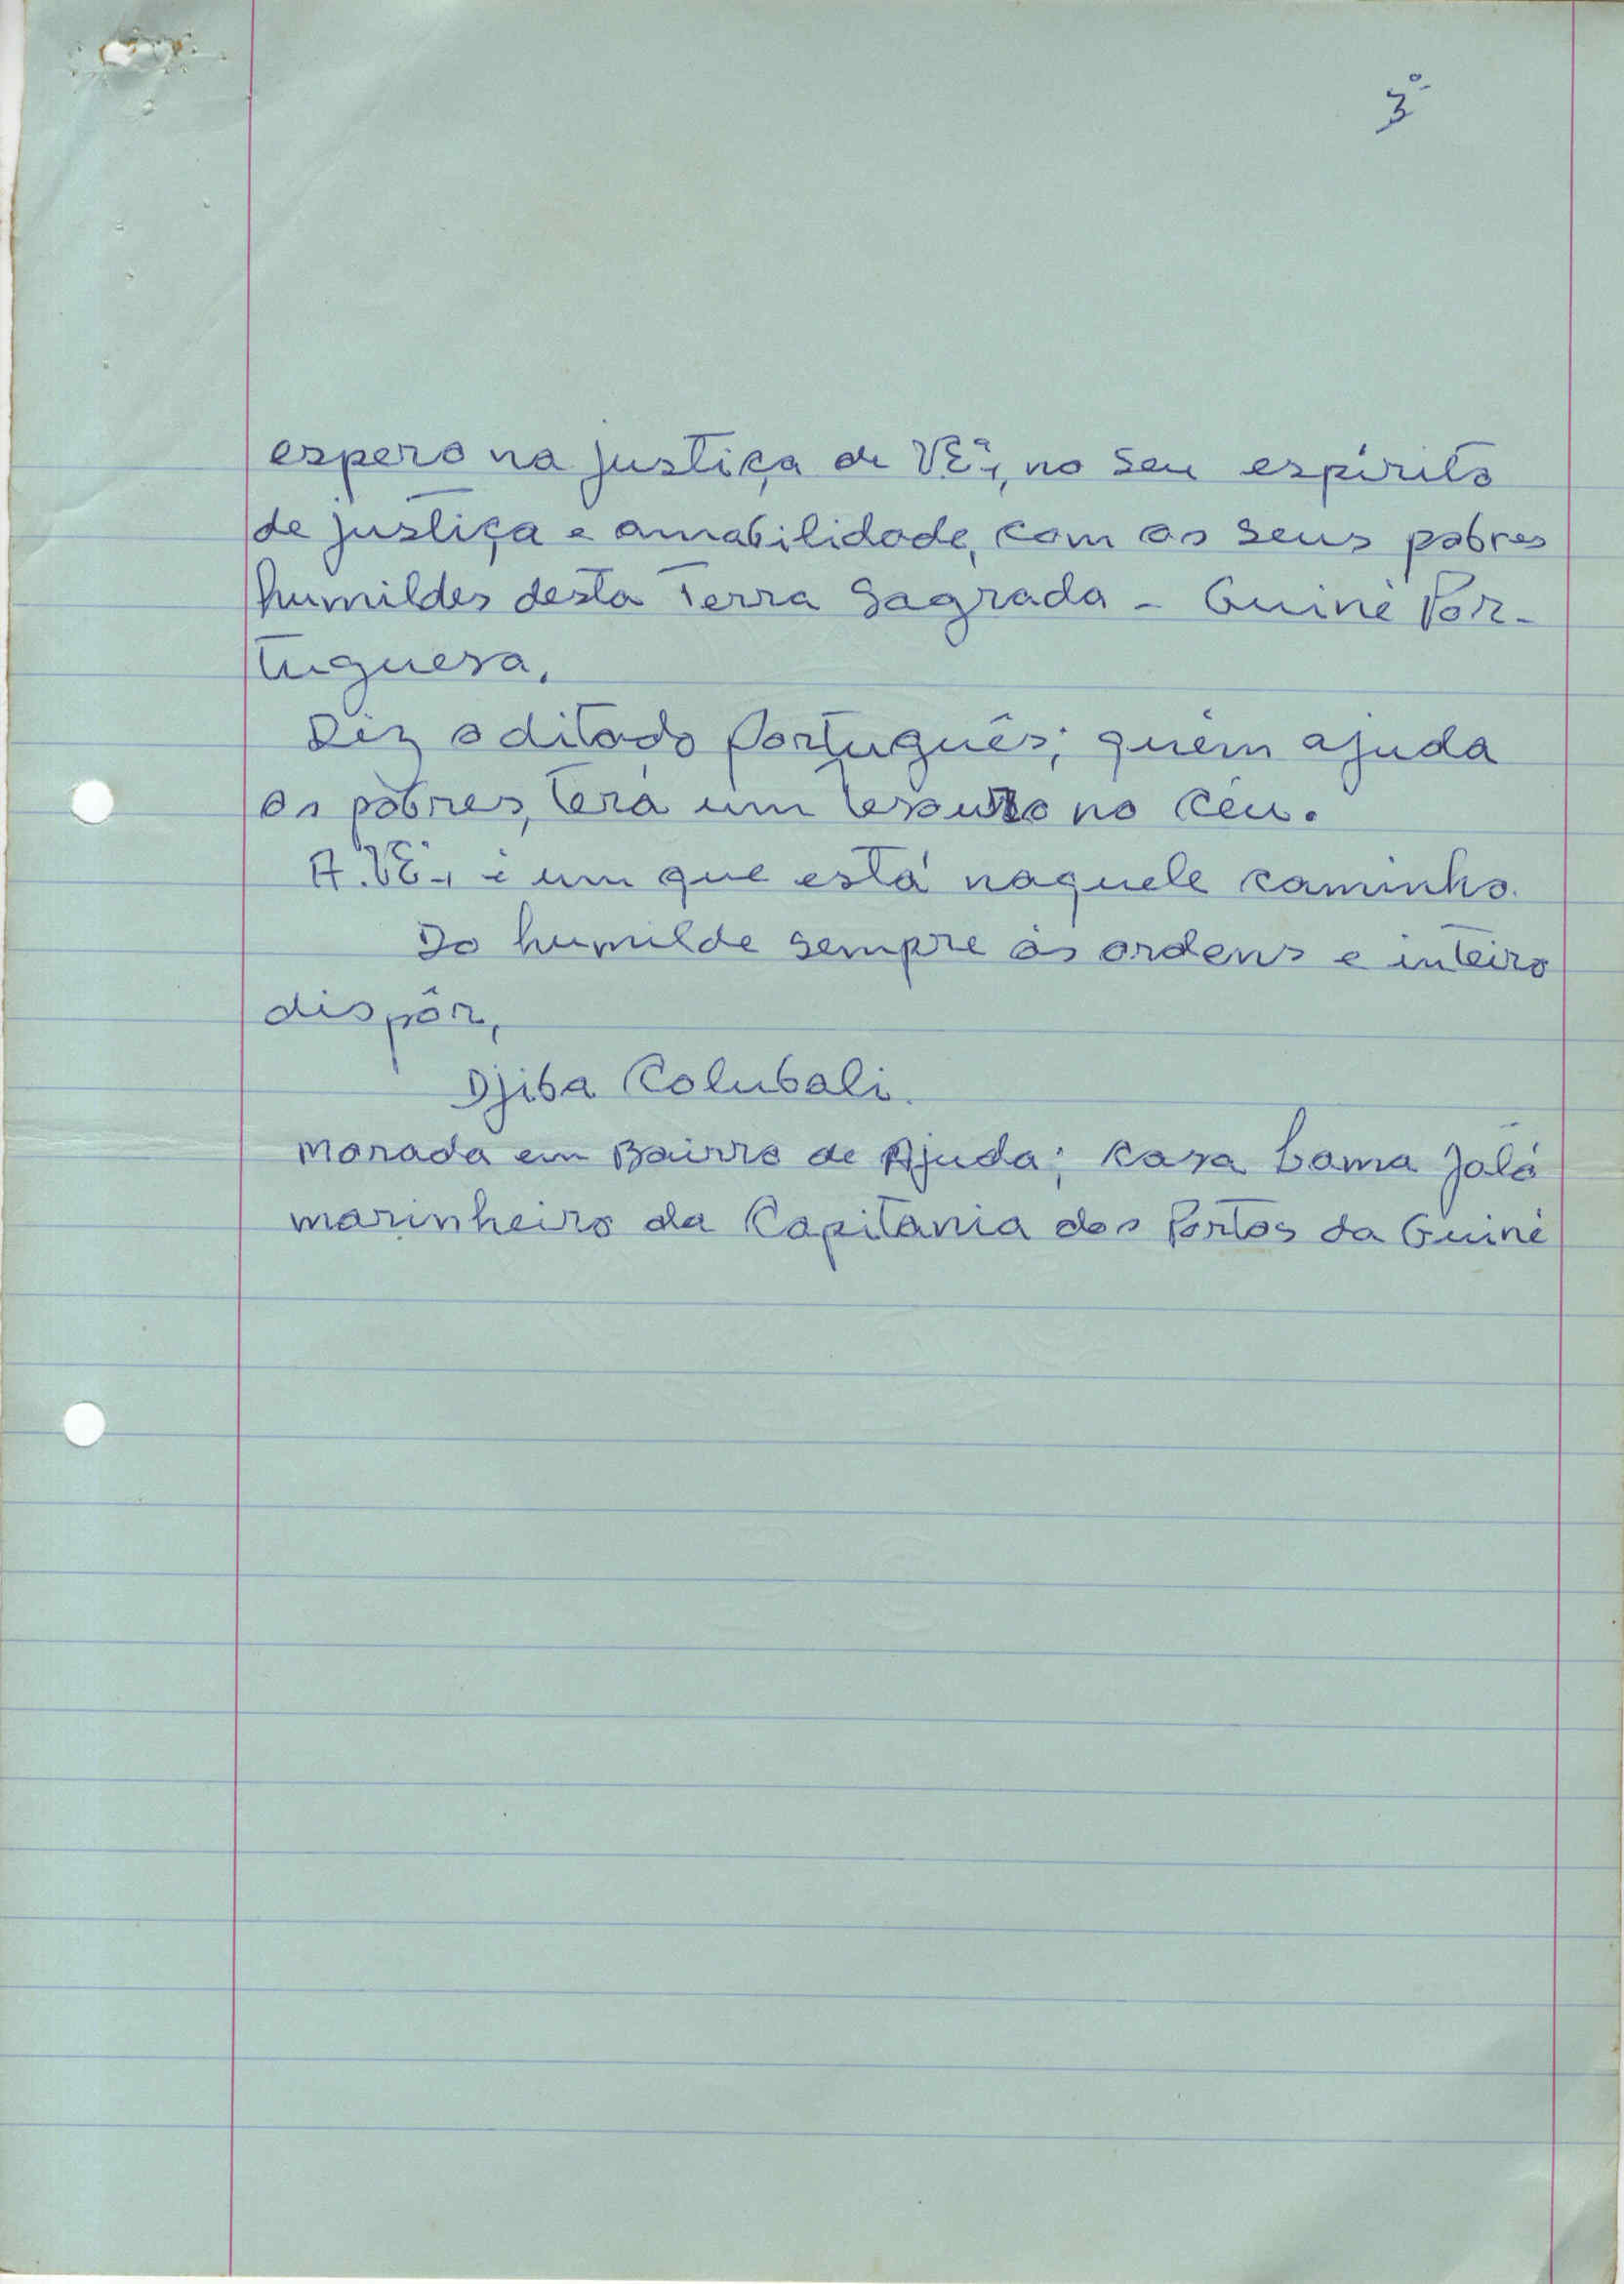 3º
espero na justiça de V.Eª., no seu espírito
de justiça e amabilidade, com os seus pobres
humildes desta Terra Sagrada - Guiné Por-
tuguesa.
Diz o ditado Português; quém ajuda
os pobres, terá um tesouro no Céu.
A.V.Eª., é um que está naquele caminho.
Do humilde sempre ás ordens e inteiro
dispôr,
Djiba Colubali.
Morada em Bairro de Ajuda; casa Lama Jaló
marinheiro da Capitania dos Portos da Guiné